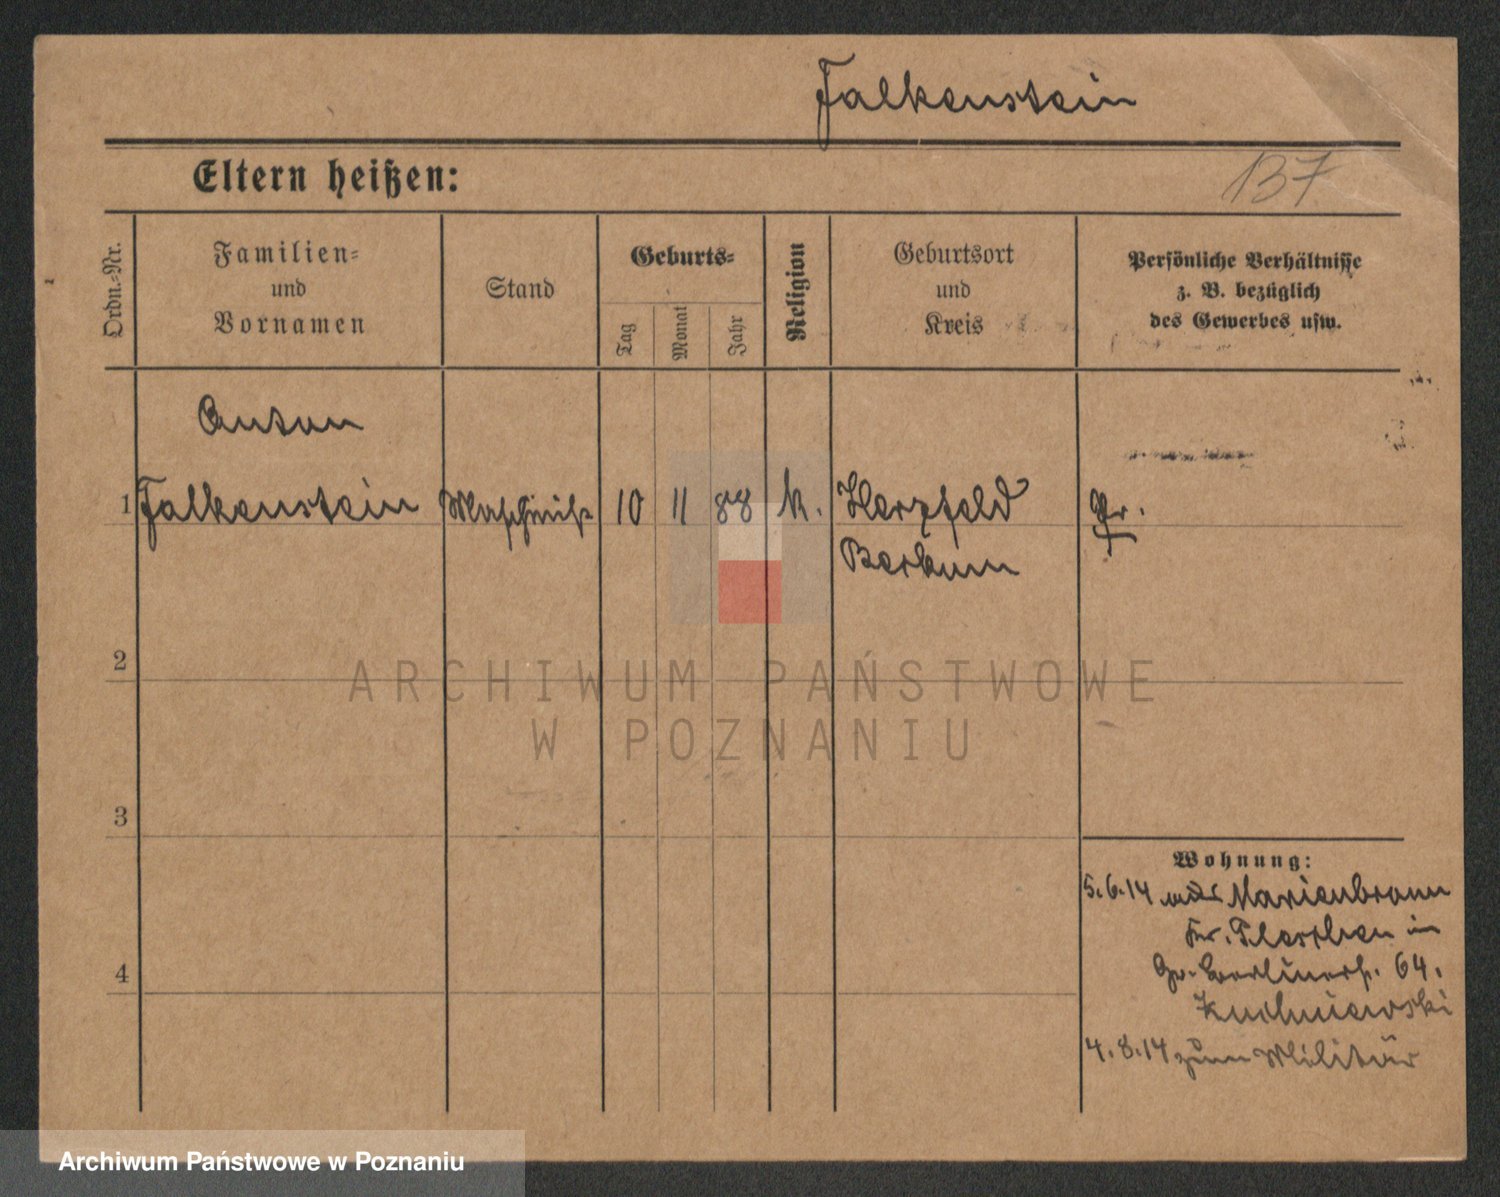 Falkenstein
Eltern heißen:
137
Ordn.-Nr.
Familien-
und
Vornamen
Stand
Geburts-
Tag
Monat
Jahr
Religion
Geburtsort
und
Kreis
Persönliche Verhältnisse
z. B. bezüglich
des Gewerbes usw.
Anton
1 Falkenstein Maschinist 10 11 88 k. Herzfeld Pr.
Beckum
2
3
4
Wohnung:
5.6.14 aus Marienbronn
Kr. Pleschen in
Gr. Berlinerst. 64.
4.8.14 zum Militär
ARCHIWUM PAŃSTWOWE
W POZNANIU
Archiwum Państwowe w Poznaniu